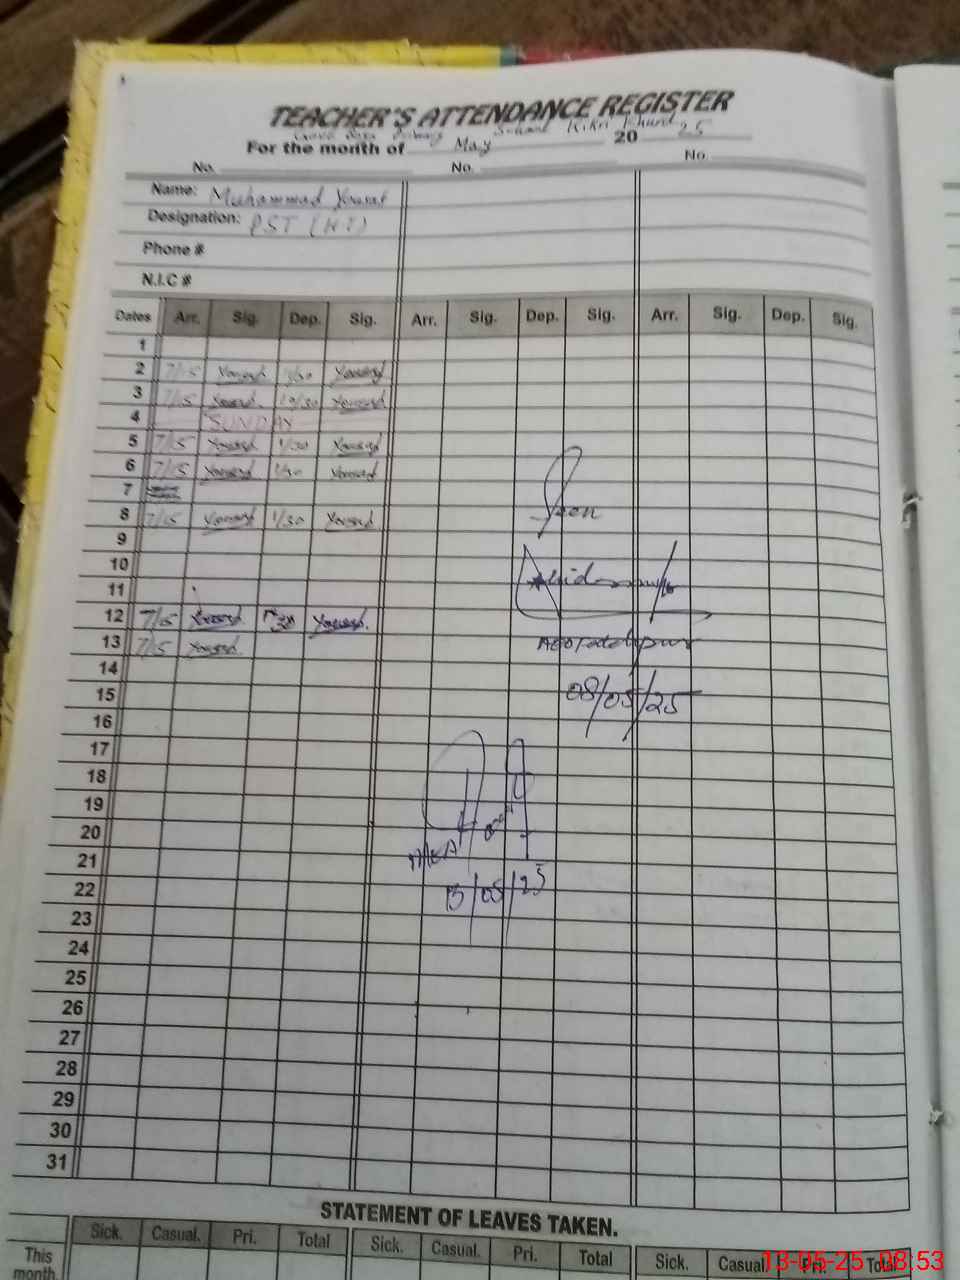 TEACHER'S ATTENDANCE REGISTER
Primary School Kikri Khurd
For the month of May 20 25
No. No. No
Name: Muhammad Yousaf
Designation: PST (H.T)
Phone #
N.I.C #
Dates Arr. Sig. Dep. Sig. Arr. Sig. Dep. Sig. Arr. Sig. Dep. Sig.
1
2 7/15 Yousaf 1/30 Yousaf
3 7/15 Yousaf Yousaf
4 SUNDAY
5 7/15 Yousaf 1/30 Yousaf
6 7/15 Yousaf 1/30 Yousaf
7
8 7/15 Yousaf 1/30 Yousaf
9
10
11
12 7/15 Yousaf Yousaf
13 7/15 Yousaf
14
15
16
17
18
19
20
21
22
23
24
25
26
27
28
29
30
31
Seen
08/05/25
MEA
13/05/25
STATEMENT OF LEAVES TAKEN.
Sick. Casual. Pri. Total Sick. Casual. Pri. Total Sick. Casual. Pri. Total
This
month.
13-05-25 08:53